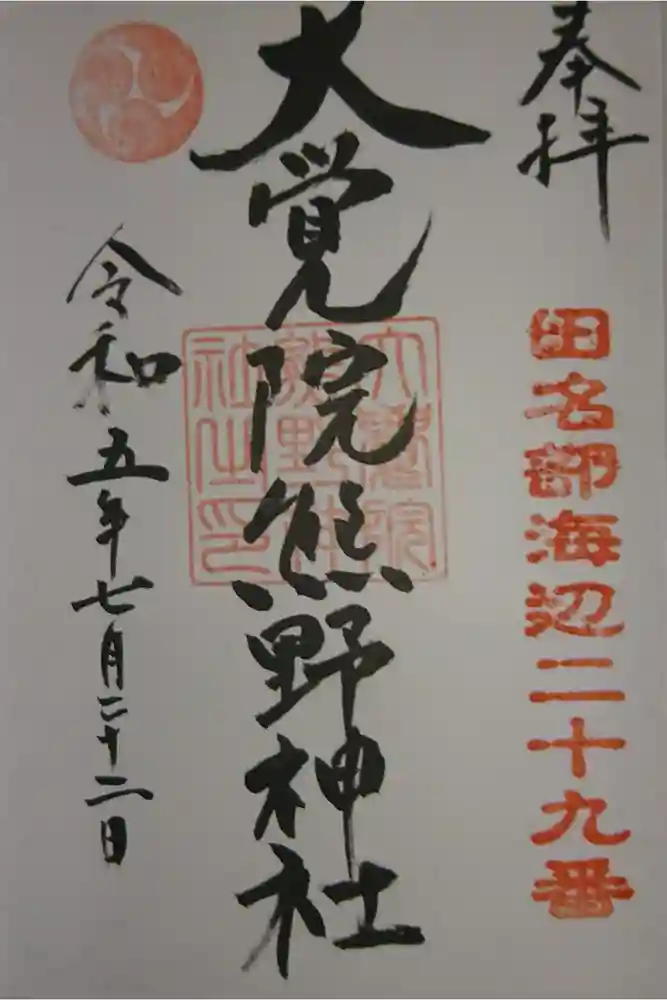 奉拝
田名部海辺二十九番
大覚院熊野神社
大覺院
熊野神
社之印
令和五年七月二十二日